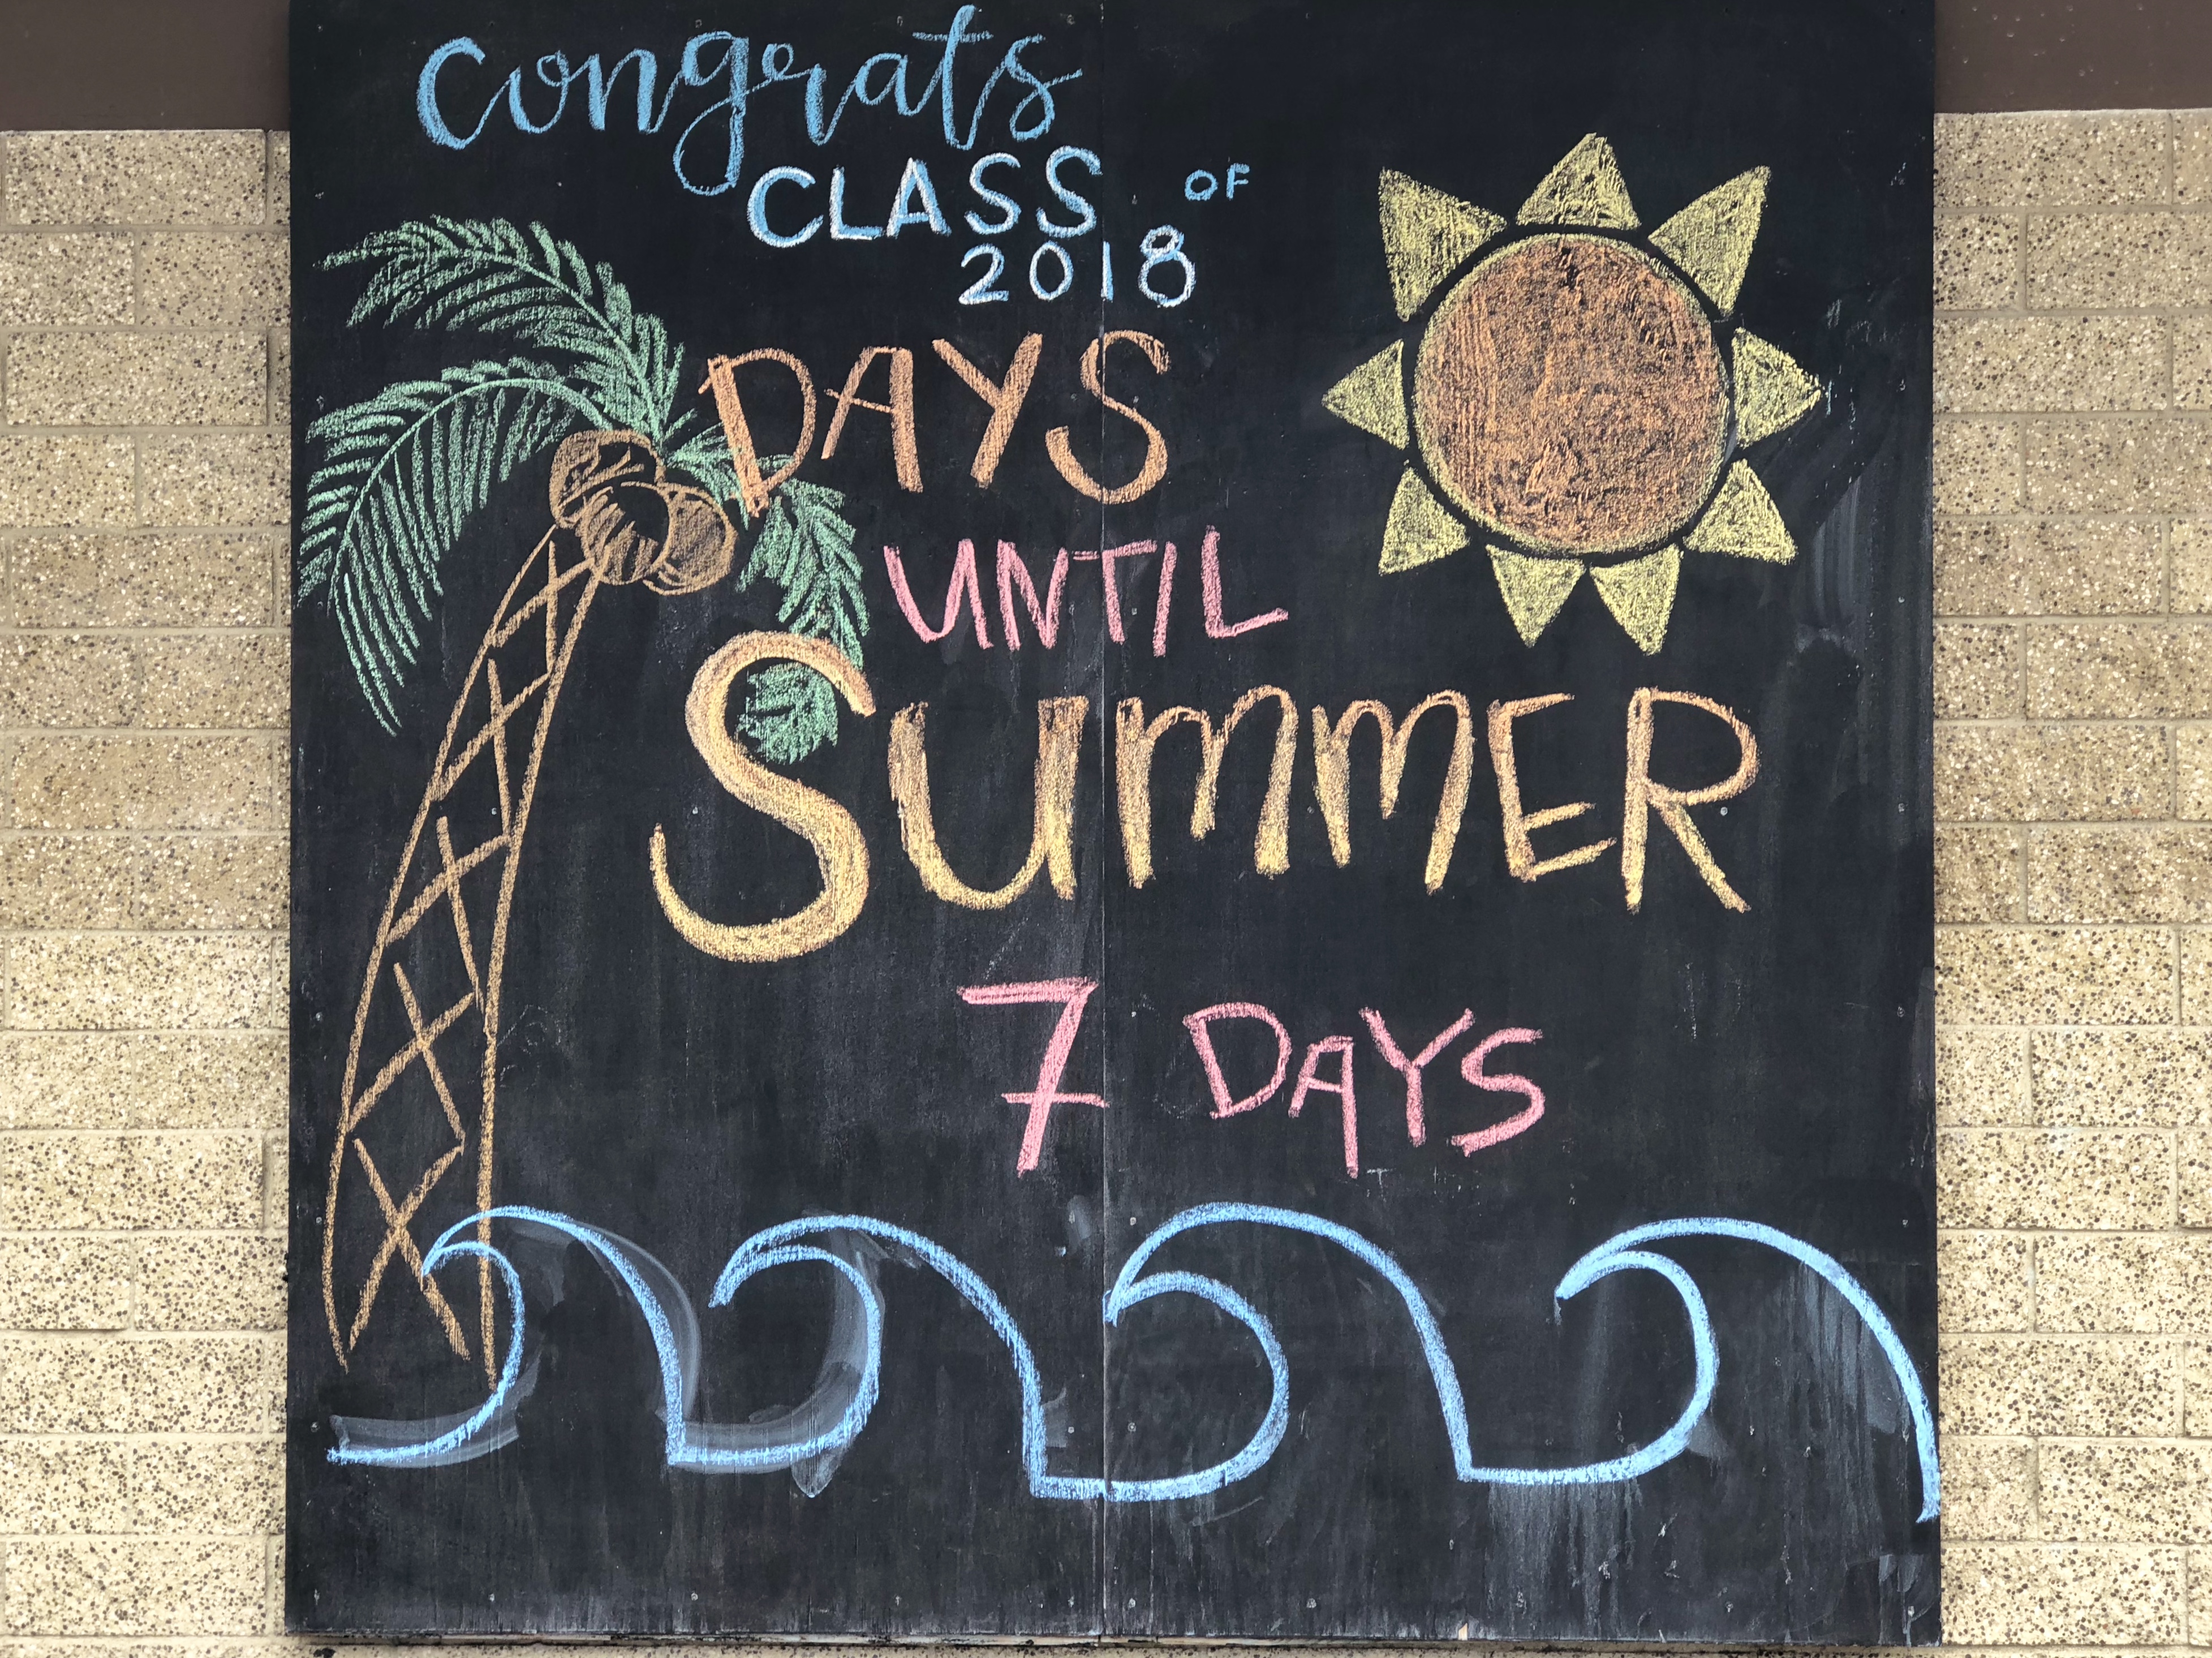 congrats
CLASS OF
2018
DAYS
UNTIL
SUMMER
7 DAYS